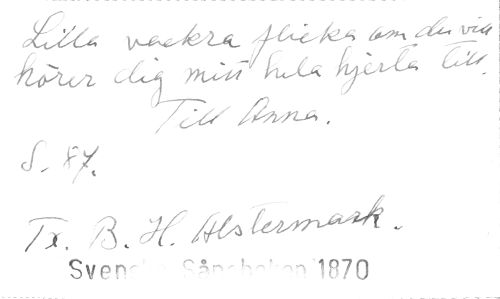 Lilla vackra flicka om du vill
hörer dig mitt hela hjerta till.
Till Anna.
S. 87.
Tx. B. H. Alstermark.
Svenska Sångboken 1870